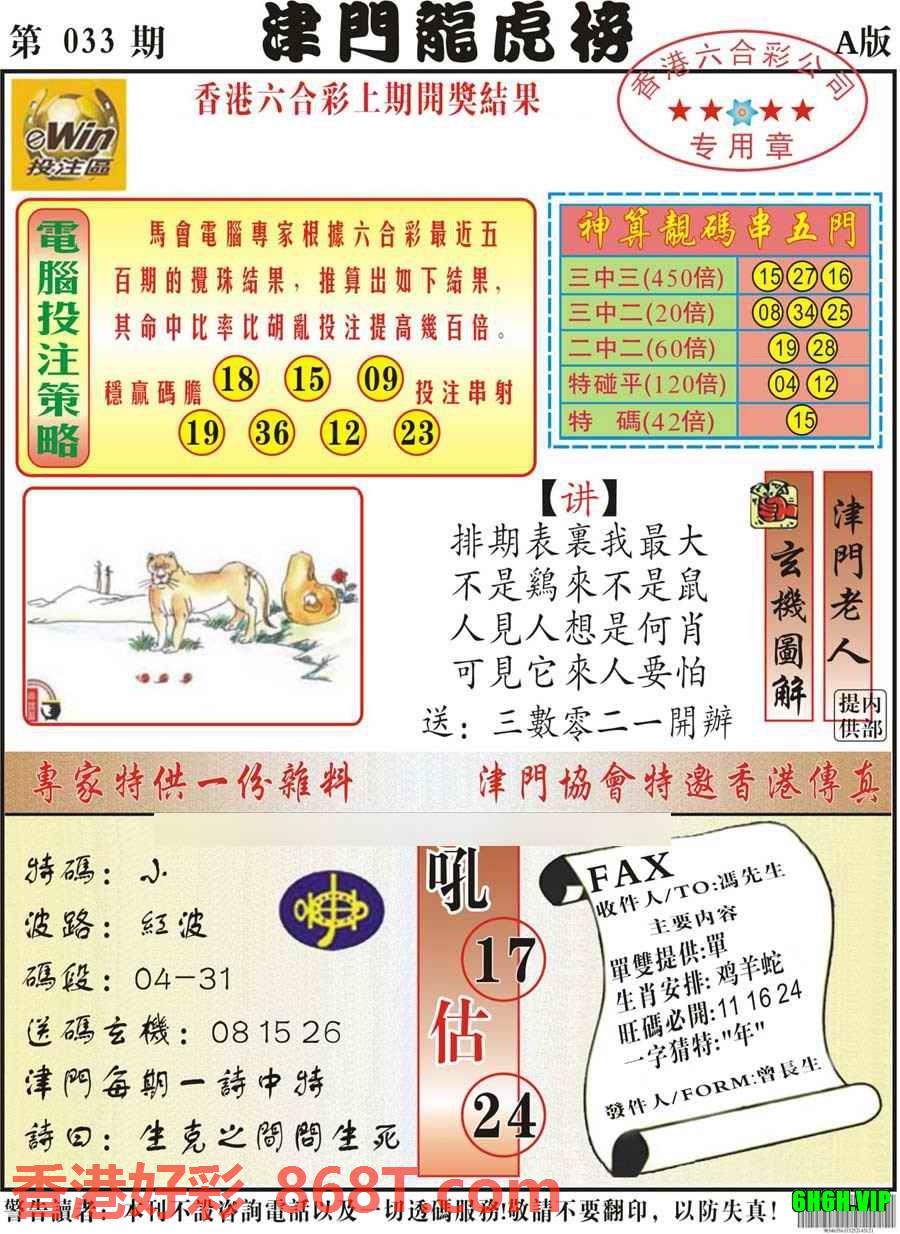 第 033 期
津門龍虎榜
A版
eWin
投注區
香港六合彩上期開獎結果
香港六合彩公司
★★★★
专用章
電腦投注策略
馬會電腦專家根據六合彩最近五
百期的攪珠結果，推算出如下結果，
其命中比率比胡亂投注提高幾百倍。
穩贏碼膽 18 15 09 投注串射
19 36 12 23
神算靚碼串五門
三中三(450倍) 15 27 16
三中二(20倍) 08 34 25
二中二(60倍) 19 28
特碰平(120倍) 04 12
特 碼(42倍) 15
【讲】
排期表裏我最大
不是鷄來不是鼠
人見人想是何肖
可見它來人要怕
送：三數零二一開辦
玄機圖解
津門老人
内部提供
專家特供一份雜料
津門協會特邀香港傳真
特碼：小
波路：紅波
碼段：04-31
送碼玄機：08 15 26
津門每期一詩中特
詩曰：生克之間問生死
吼
17
估
24
FAX
收件人/TO:馮先生
主要内容
單雙提供:單
生肖安排:鸡羊蛇
旺碼必開:11 16 24
一字猜特:"年"
發件人/FORM:曾長生
香港好彩 868T.com
警告讀者：本刊不設咨詢電話以及一切透碼服務!敬請不要翻印，以防失真!
6H6H.VIP